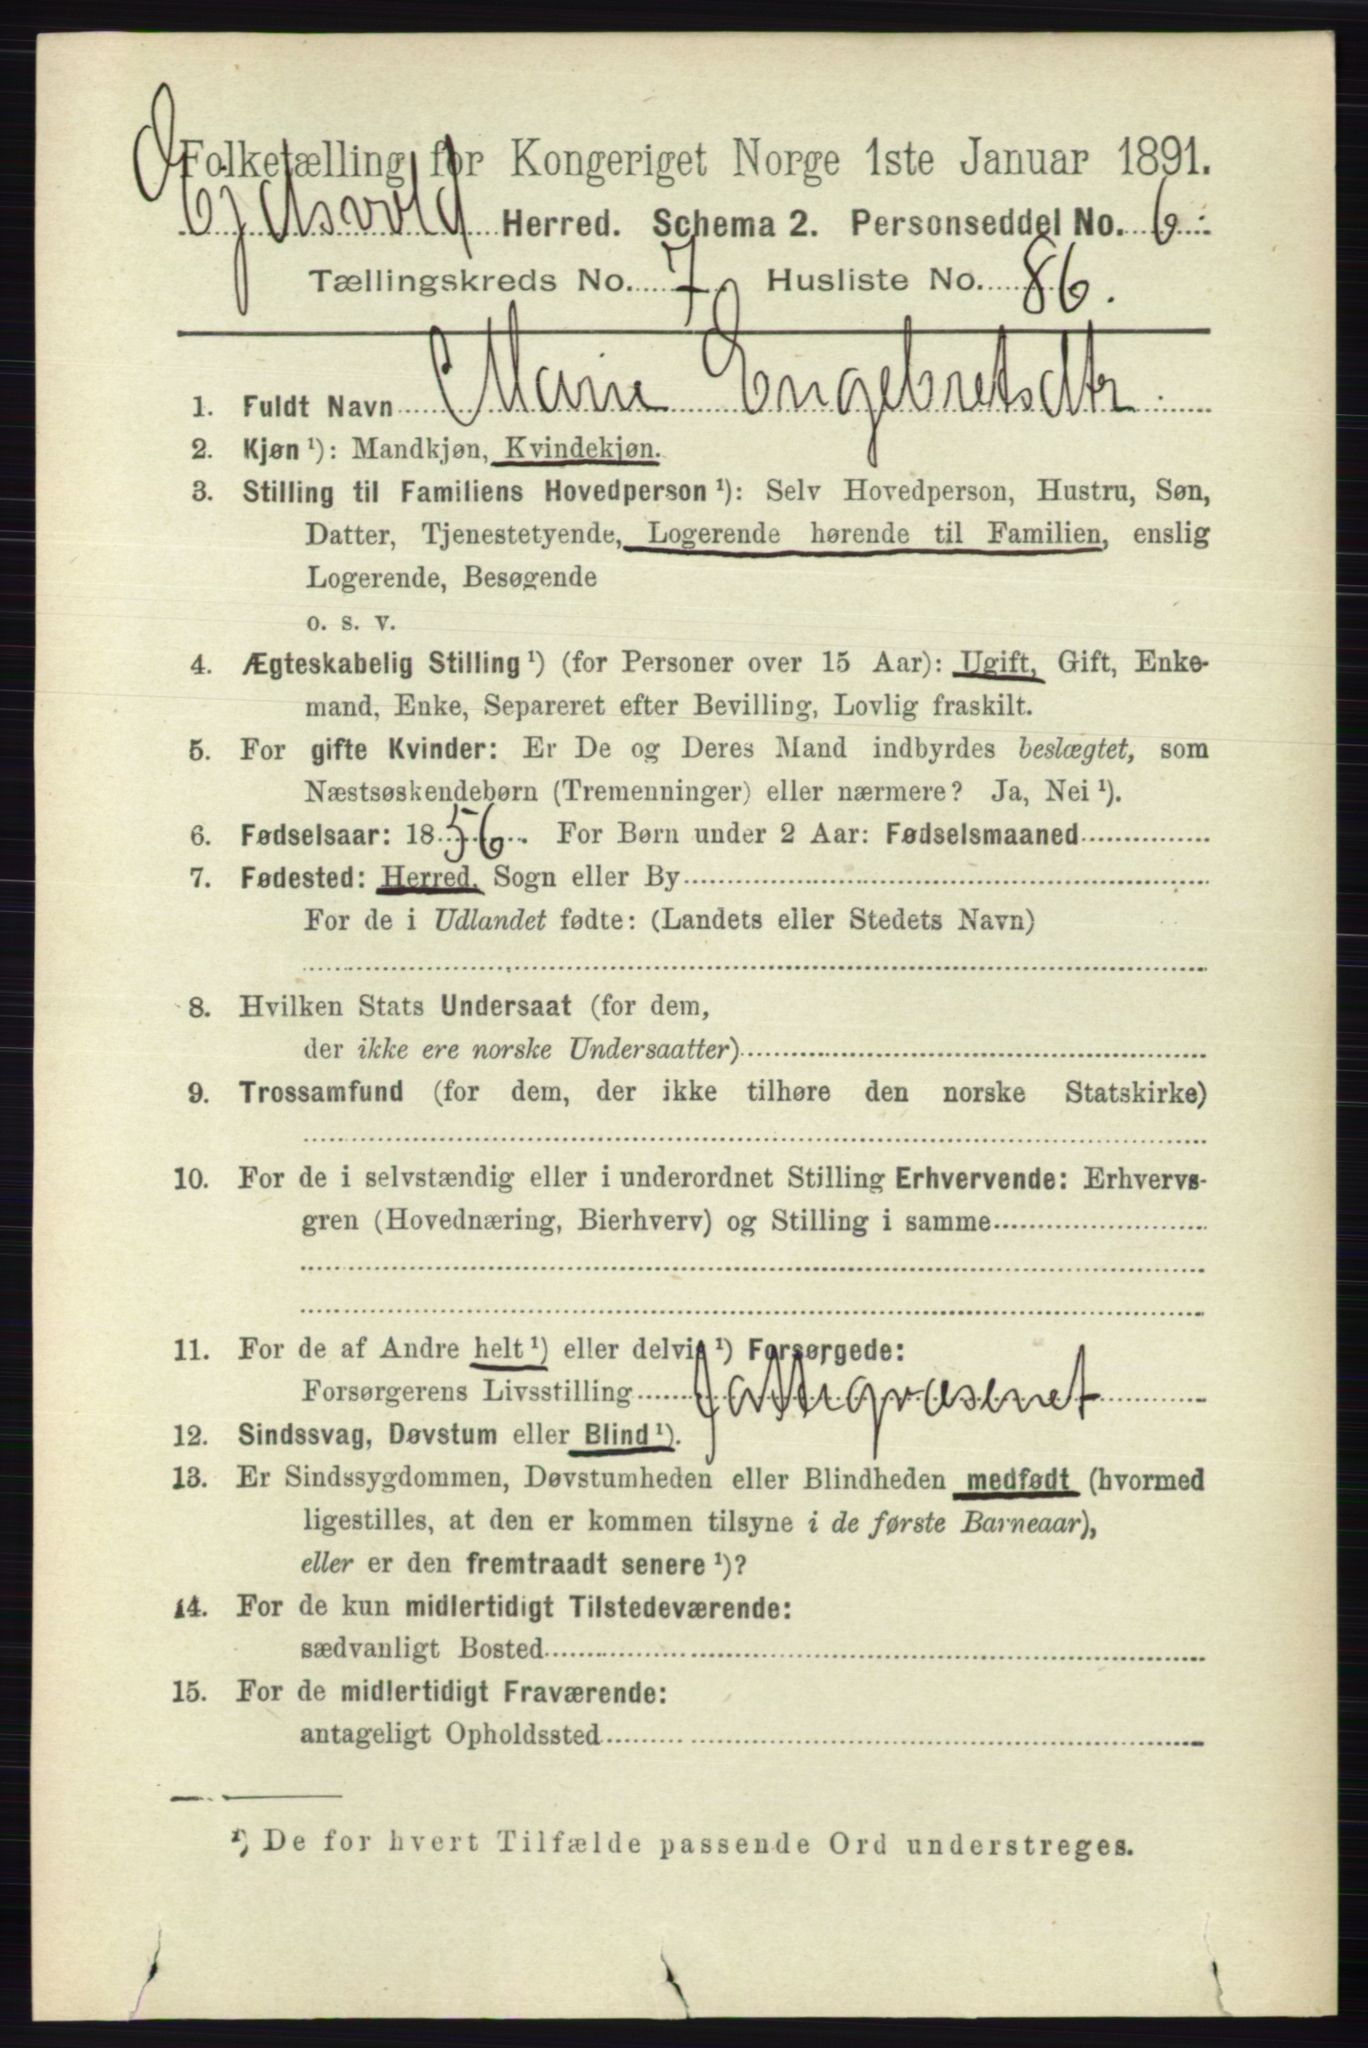 Folketælling for Kongeriget Norge 1ste Januar 1891.
Ejdsvold Herred. Schema 2. Personseddel No. 6.
Tællingskreds No. 7 Husliste No. 86.
1. Fuldt Navn Marie Engebretsdtr
2. Kjøn ¹): Mandkjøn, Kvindekjøn.
3. Stilling til Familiens Hovedperson ¹): Selv Hovedperson, Hustru, Søn,
Datter, Tjenestetyende, Logerende hørende til Familien, enslig
Logerende, Besøgende
o. s. v.
4. Ægteskabelig Stilling ¹) (for Personer over 15 Aar): Ugift, Gift, Enke-
mand, Enke, Separeret efter Bevilling, Lovlig fraskilt.
5. For gifte Kvinder: Er De og Deres Mand indbyrdes beslægtet, som
Næstsøskendebørn (Tremenninger) eller nærmere? Ja, Nei ¹).
6. Fødselsaar: 1856. For Børn under 2 Aar: Fødselsmaaned
7. Fødested: Herred, Sogn eller By
For de i Udlandet fødte: (Landets eller Stedets Navn)
8. Hvilken Stats Undersaat (for dem,
der ikke ere norske Undersaatter)
9. Trossamfund (for dem, der ikke tilhøre den norske Statskirke)
10. For de i selvstændig eller i underordnet Stilling Erhvervende: Erhvervs-
gren (Hovednæring, Bierhverv) og Stilling i samme
11. For de af Andre helt ¹) eller delvis ¹) Forsørgede:
Forsørgerens Livsstilling Fattigvæsenet
12. Sindssvag, Døvstum eller Blind ¹).
13. Er Sindssygdommen, Døvstumheden eller Blindheden medfødt (hvormed
ligestilles, at den er kommen tilsyne i de første Barneaar),
eller er den fremtraadt senere ¹)?
14. For de kun midlertidigt Tilstedeværende:
sædvanligt Bosted
15. For de midlertidigt Fraværende:
antageligt Opholdssted
¹) De for hvert Tilfælde passende Ord understreges.